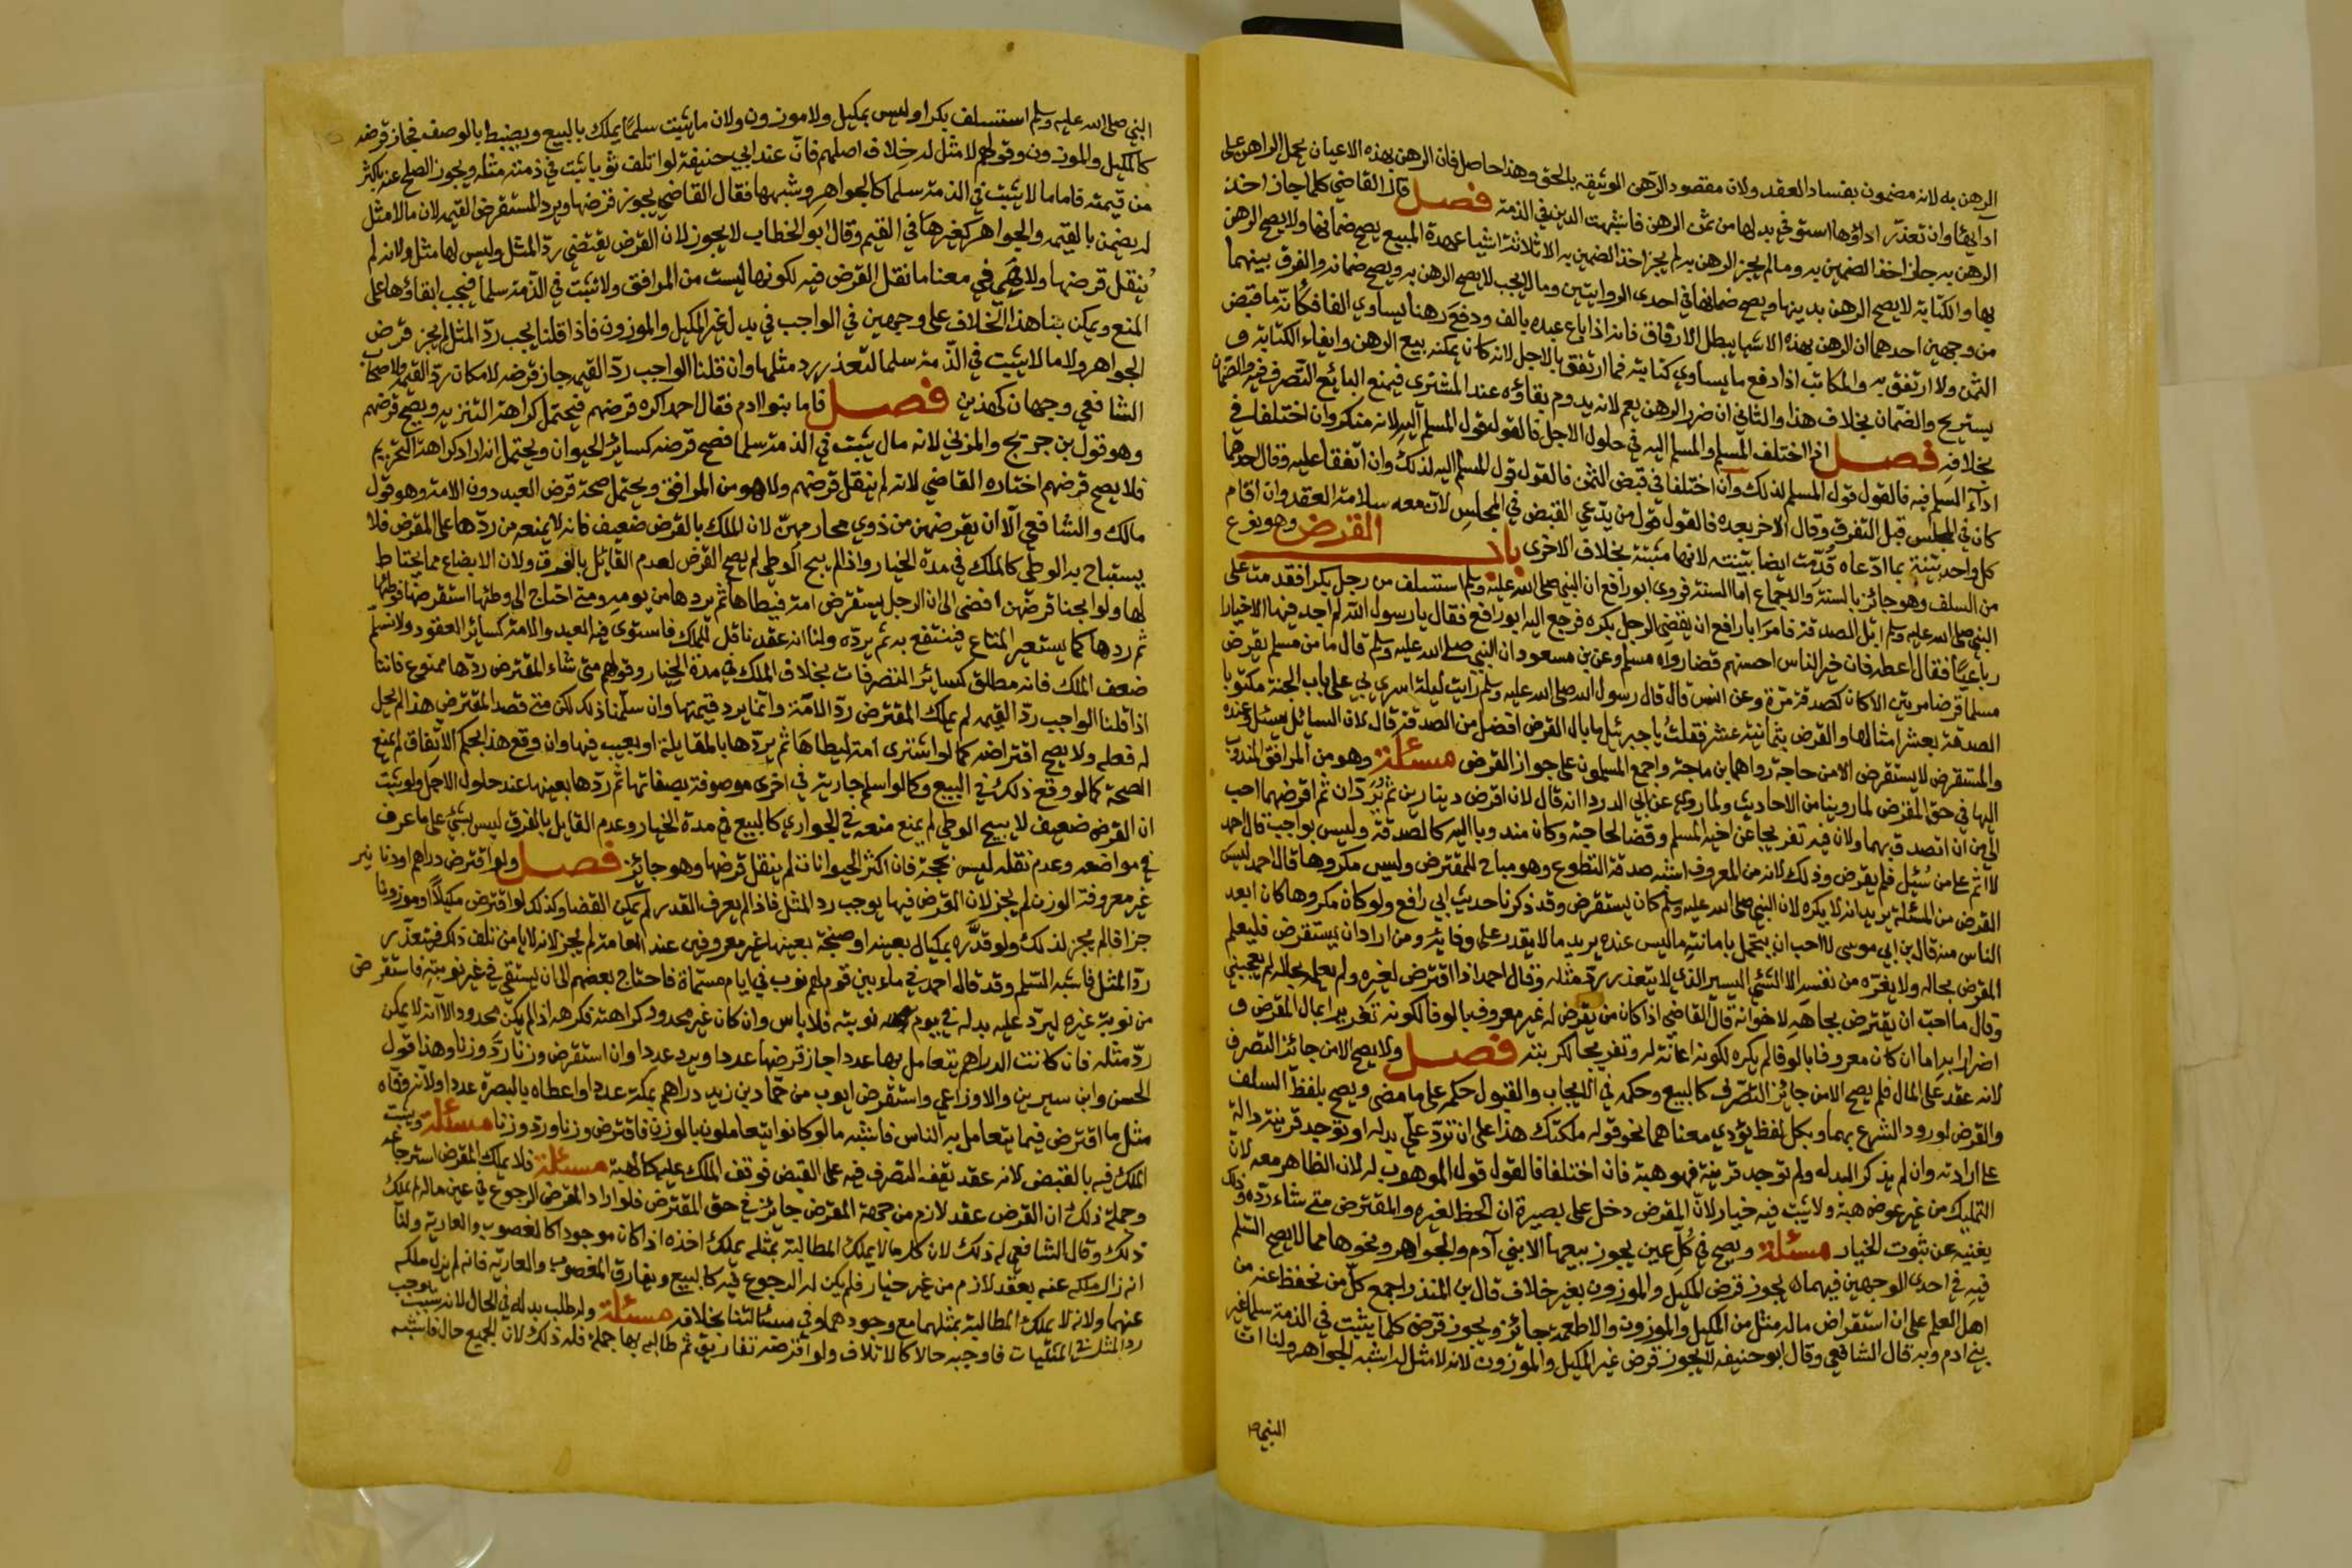 الرهن به لانه مضمون بفساد العقد ولان مقصود الرهن الوثيقة بالحق وهذا حاصل فان الرهن بهذه الاعيان يحمل الراهن على
ادائها وان تعذر اداؤها استوفي بدلها من ثمن الرهن فاشبهت الدين في الذمة فصل قال القاضي كلما جاز اخذ
الرهن به جاز اخذ الضمين به وما لم يجز الرهن به لم يجز اخذ الضمين به الا ثلاثة اشياء عهدة المبيع يصح ضمانها ولا يصح الرهن
بها والكتابة لا يصح الرهن بدينها ويصح ضمانها في احدى الروايتين وما لا يجب لا يصح الرهن به ويصح ضمانه والفرق بينهما
من وجهين احدهما ان الرهن بهذه الاشيا يبطل الارفاق فانه اذا باع عبده بالف ودفع رهنا يساوي الفا فكانه ما قبض
الثمن ولا ارتفق به والمكاتب اذا دفع ما يساوي كتابته فما ارتفق بالاجل لانه كان يمكنه بيع الرهن وايفاء الكتابة و
يستريح والضمان بخلاف هذا والثاني ان ضرر الرهن يعم لانه يدوم بقاؤه عند المشتري فيمنع البائع التصرف فيه والضمان
بخلافه فصل اذا اختلف المسلم والمسلم اليه في حلول الاجل فالقول قول المسلم اليه لانه منكر وان اختلفا في
اداء السلم فيه فالقول قول المسلم لذلك وان اختلفا في قبض الثمن فالقول قول المسلم اليه لذلك وان اتفقا عليه وقال احدهما
كان في المجلس قبل التفرق وقال الاخر بعده فالقول قول من يدعي القبض في المجلس لان معه سلامة العقد وان اقام
كل واحد بينة بما ادعاه قدمت ايضا بينته لانها مثبتة بخلاف الاخرى باب القرض وهو نوع
من السلف وهو جائز بالسنة والاجماع اما السنة فروى ابو رافع ان النبي صلى الله عليه وسلم استسلف من رجل بكرا فقدمت على
النبي صلى الله عليه وسلم ابل الصدقة فامر ابا رافع ان يقضي الرجل بكره فرجع اليه ابو رافع فقال يا رسول الله لم اجد فيها الا خيارا
رباعيا فقال اعطه فان خير الناس احسنهم قضا رواه مسلم وعن بن مسعود ان النبي صلى الله عليه وسلم قال ما من مسلم يقرض
مسلما قرضا مرتين الا كان كصدقة مرة وعن انس قال قال رسول الله صلى الله عليه وسلم رايت ليلة اسري بي على باب الجنة مكتوبا
الصدقة بعشر امثالها والقرض بثمانية عشر فقلت يا جبرئيل ما بال القرض افضل من الصدقة قال لان السائل يسئل وعنده
والمستقرض لا يستقرض الا من حاجة رواهما بن ماجة واجمع المسلمون على جواز القرض مسئلة وهو من المرافق المندوب
اليها في حق المقرض لما روينا من الاحاديث ولما روي عن ابي الدردا انه قال لان اقرض دينارين ثم يردان ثم اقرضهما احب
الي من ان اتصدق بهما ولان فيه تفريجا عن اخيه المسلم وقضا لحاجته وكان مندوبا اليه كالصدقة وليس بواجب قال احمد
لا اثم على من سئل فلم يقرض وذلك لانه من المعروف اشبه صدقة التطوع وهو مباح للمقترض وليس مكروها قال احمد ليس
القرض من المسئلة يريد انه لا يكره لان النبي صلى الله عليه وسلم كان يستقرض وقد ذكرنا حديث ابي رافع ولو كان مكروها كان ابعد
الناس منه قال بن ابي موسى لا احب ان يتحمل بامانته ما ليس عنده يريد ما لا يقدر على وفائه ومن اراد ان يستقرض فليعلم
المقرض بحاله ولا يغره من نفسه الا الشئ اليسير الذي لا يتعذر رد مثله وقال احمد اذا اقترض لغيره ولم يعلم بحاله لم يعجبني
وقال ما احب ان يقترض بجاهه لاخوانه قال القاضي اذا كان من يقرض له غير معروف بالوفا لكونه تغريرا بمال المقرض و
اضرارا به اما ان كان معروفا بالوفا لم يكره لكونه اعانة له وتفريجا لكربته فصل ولا يصح الا من جائز التصرف
لانه عقد على المال فلم يصح الا من جائز التصرف كالبيع وحكمه في الايجاب والقبول حكمه على ما مضى ويصح بلفظ السلف
والقرض لورود الشرع بهما وبكل لفظ يؤدي معناهما نحو قوله ملكتك هذا على ان ترد علي بدله او توجد قرينة دالة
على ارادته وان لم يذكر البدل ولم توجد قرينة فهو هبة فان اختلفا فالقول قول الموهوب له لان الظاهر معه لان
التمليك من غير عوض هبة ولا يثبت فيه خيار لان المقرض دخل على بصيرة ان الحظ لغيره والمقترض متى شاء رده وذلك
يغنيه عن ثبوت الخيار مسئلة ويصح في كل عين يجوز بيعها الا بني آدم والجواهر ونحوها مما لا يصح السلم
فيه في احدى الوجهين فيهما يجوز قرض المكيل والموزون بغير خلاف قال بن المنذر اجمع كل من نحفظ عنه من
اهل العلم على ان استقراض ماله مثل من المكيل والموزون والاطعمة جائز ويجوز قرض كلما يثبت في الذمة سلما غير
بني ادم وبه قال الشافعي وقال ابو حنيفة لا يجوز قرض غير المكيل والموزون لانه لا مثل له اشبه الجواهر ولنا ان
النبي
النبي صلى الله عليه وسلم استسلف بكرا وليس بمكيل ولا موزون ولان ما يثبت سلما يملك بالبيع ويضبط بالوصف فجاز قرضه
كالمكيل والموزون وقولهم لا مثل له خلاف اصلهم فان عند ابي حنيفة لو اتلف ثوبا ثبت في ذمته مثله ويجوز الصلح عنه باكثر
من قيمته فاما ما لا يثبت في الذمة سلما كالجواهر وشبهها فقال القاضي يجوز قرضها ويرد المستقرض القيمة لان ما لا مثل
له يضمن بالقيمة والجواهر كغيرها في القيم وقال ابو الخطاب لا يجوز لان القرض يقتضي رد المثل وليس لها مثل ولانه لم
ينقل قرضها ولا هي في معنا ما نقل القرض فيه لكونها ليست من المرافق ولا تثبت في الذمة سلما فيجب ابقاؤها على
المنع ويمكن بنا هذا الخلاف على وجهين في الواجب في بدل غير المكيل والموزون فاذا قلنا يجب رد المثل لم يجز قرض
الجواهر ولا ما لا يثبت في الذمة سلما لتعذر رد مثلها وان قلنا الواجب رد القيمة جاز قرضه لامكان رد القيمة ولاصحاب
الشافعي وجهان كهذين فصل فاما بنوا ادم فقال احمد اكره قرضهم فيحتمل كراهة التنزيه ويصح قرضهم
وهو قول بن جريج والمزني لانه مال يثبت في الذمة سلما فصح قرضه كسائر الحيوان ويحتمل انه اراد كراهة التحريم
فلا يصح قرضهم اختاره القاضي لانه لم ينقل قرضهم ولا هو من المرافق ويحتمل صحة قرض العبد دون الامة وهو قول
مالك والشافعي الا ان يقرضهن من ذوي محارمهن لان الملك بالقرض ضعيف فانه لا يمنعه من ردها على المقرض فلا
يستباح به الوطي كالملك في مدة الخيار واذا لم يبح الوطي لم يصح القرض لعدم القائل بالفرق ولان الابضاع مما يحتاط
لها ولو ابحنا قرضهن افضى الى ان الرجل يستقرض امة فيطاها ثم يردها من يومه ومتى احتاج الى وطئها استقرضها فوطئها
ثم ردها كما يستعير المتاع فينتفع به ثم يرده ولنا انه عقد ناقل للملك فاستوى فيه العبد والامة كسائر العقود ولا نسلم
ضعف الملك فانه مطلق لسائر التصرفات بخلاف الملك في مدة الخيار وقولهم متى شاء المقترض ردها ممنوع فاننا
اذا قلنا الواجب رد القيمة لم يملك المقترض رد الامة وانما يرد قيمتها وان سلمنا ذلك لكن متى قصد المقترض هذا لم يحل
له فعله ولا يصح اقتراضه كما لو اشترى امة ليطاها ثم يردها بالمقايلة او بعيب فيها وان وقع هذا بحكم الاتفاق لم يمنع
الصحة كما لو وقع ذلك في البيع وكما لو اسلم جارية في اخرى موصوفة بصفاتها ثم ردها بعينها عند حلول الاجل ولو ثبت
ان القرض ضعيف لا يبيح الوطي لم يمنع منعه في الجواري كالبيع في مدة الخيار وعدم القايل بالفرق ليس بشئ على ما عرف
في مواضعه وعدم نقله ليس بحجة فان اكثر الحيوانات لم ينقل قرضها وهو جائز فصل ولو اقترض دراهم او دنانير
غير معروفة الوزن لم يجز لان القرض فيها يوجب رد المثل فاذا لم يعرف القدر لم يمكن القضا وكذلك لو اقترض مكيلا او موزونا
جزافا لم يجز لذلك ولو قدره بمكيال بعينه او صنجة بعينها غير معروفين عند العامة لم يجز لانه لا يامن تلف ذلك فيتعذر
رد المثل فاشبه السلم وقد قال احمد في ماء بين قوم لهم نوب في ايام مسماة فاحتاج بعضهم الى ان يستقي في غير نوبته فاستقرض
من نوبة غيره ليرد عليه بدله في يوم نوبته فلا باس وان كان غير محدود كراهته فكرهه اذا لم يكن محدودا لانه لا يمكن
رد مثله فان كانت الدراهم يتعامل بها عددا جاز قرضها عددا ويرد عددا وان استقرض وزنا رد وزنا وهذا قول
الحسن وابن سيرين والاوزاعي واستقرض ايوب من حماد بن زيد دراهم بمكة عددا واعطاه بالبصرة عددا ولانه وفاه
مثل ما اقترض فيما يتعامل به الناس فاشبه ما لو كانوا يتعاملون بالوزن فاقترض وزنا ورد وزنا مسئلة ويثبت
الملك فيه بالقبض لانه عقد يقف التصرف فيه على القبض فوقف الملك عليه كالهبة مسئلة فلا يملك المقرض استرجاعه
وجملة ذلك ان القرض عقد لازم من جهة المقرض جائز في حق المقترض فلو اراد المقرض الرجوع في عين ماله لم يملك
ذلك وقال الشافعي له ذلك لان كل ما يملك المطالبة بمثله يملك اخذه اذا كان موجودا كالمغصوب والعارية ولنا
انه زال ملكه عنه بعقد لازم من غير خيار فلم يكن له الرجوع فيه كالبيع ويفارق المغصوب والعارية فانه لم يزل ملكه
عنهما ولانه لا يملك المطالبة بمثلهما مع وجودهما وفي مسئالتنا بخلافه مسئلة وله طلب بدله في الحال لانه سبب يوجب
رد المثل في المثليات فاوجبه حالا كالاتلاف ولو اقرضه تفاريق ثم طالبه بها جملة فله ذلك لان الجميع حال فاشبه